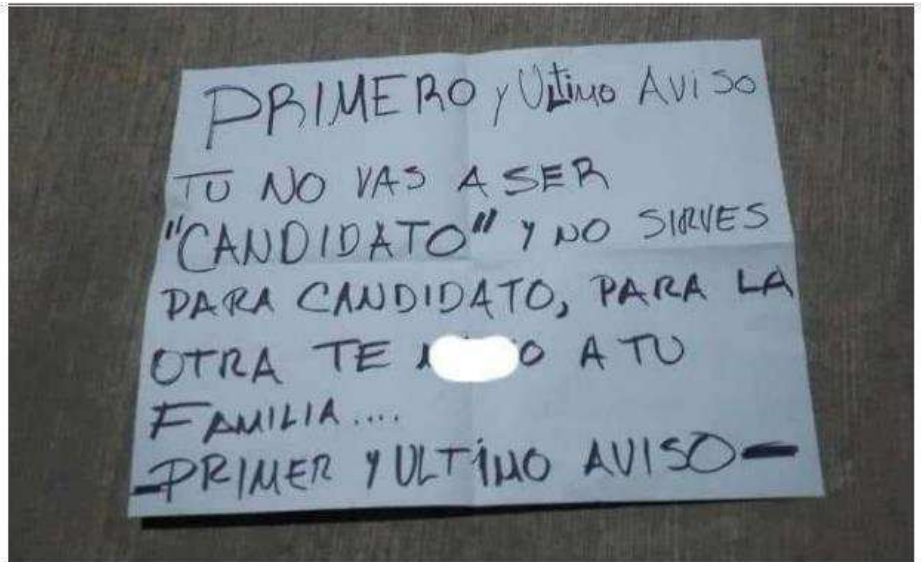 PRIMERO y Ultimo AViSo
TU NO VAS A SER
"CANDIDATO" Y NO SIRVES
PARA CANDIDATO, PARA LA
OTRA TE A TU
FAMILIA....
-PRIMER Y ULTÍMO AVISO-